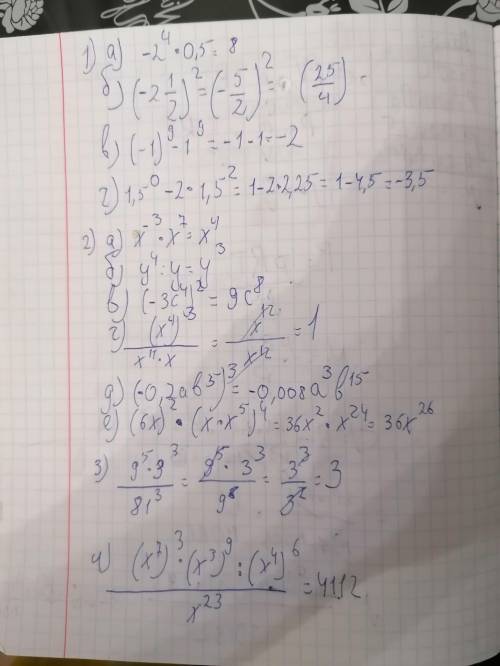 1) а) -2⁴ · 0,5 = 8
б) (-2 1/2)² = (-5/2)² = (25/4)
в) (-1)⁹ - 1⁹ = -1 - 1 = -2
г) 1,5⁰ - 2 · 1,5² = 1 - 2 · 2,25 = 1 - 4,5 = -3,5
2) а) x⁻³ · x⁷ = x⁴
б) y⁴ : y = y³
в) (-3c⁴)² = 9c⁸
г) (x⁴)³ / x¹¹ · x = x¹² / x¹² = 1
д) (-0,2ab⁵)³ = -0,008a³b¹⁵
е) (6x)² · (x · x⁵)⁴ = 36x² · x²⁴ = 36x²⁶
3) 9⁵ · 3³ / 81³ = 9⁵ · 3³ / 9⁶ = 3³ / 3² = 3
4) (x⁷)³ · (x³)⁹ : (x⁴)⁶ / x²³ =